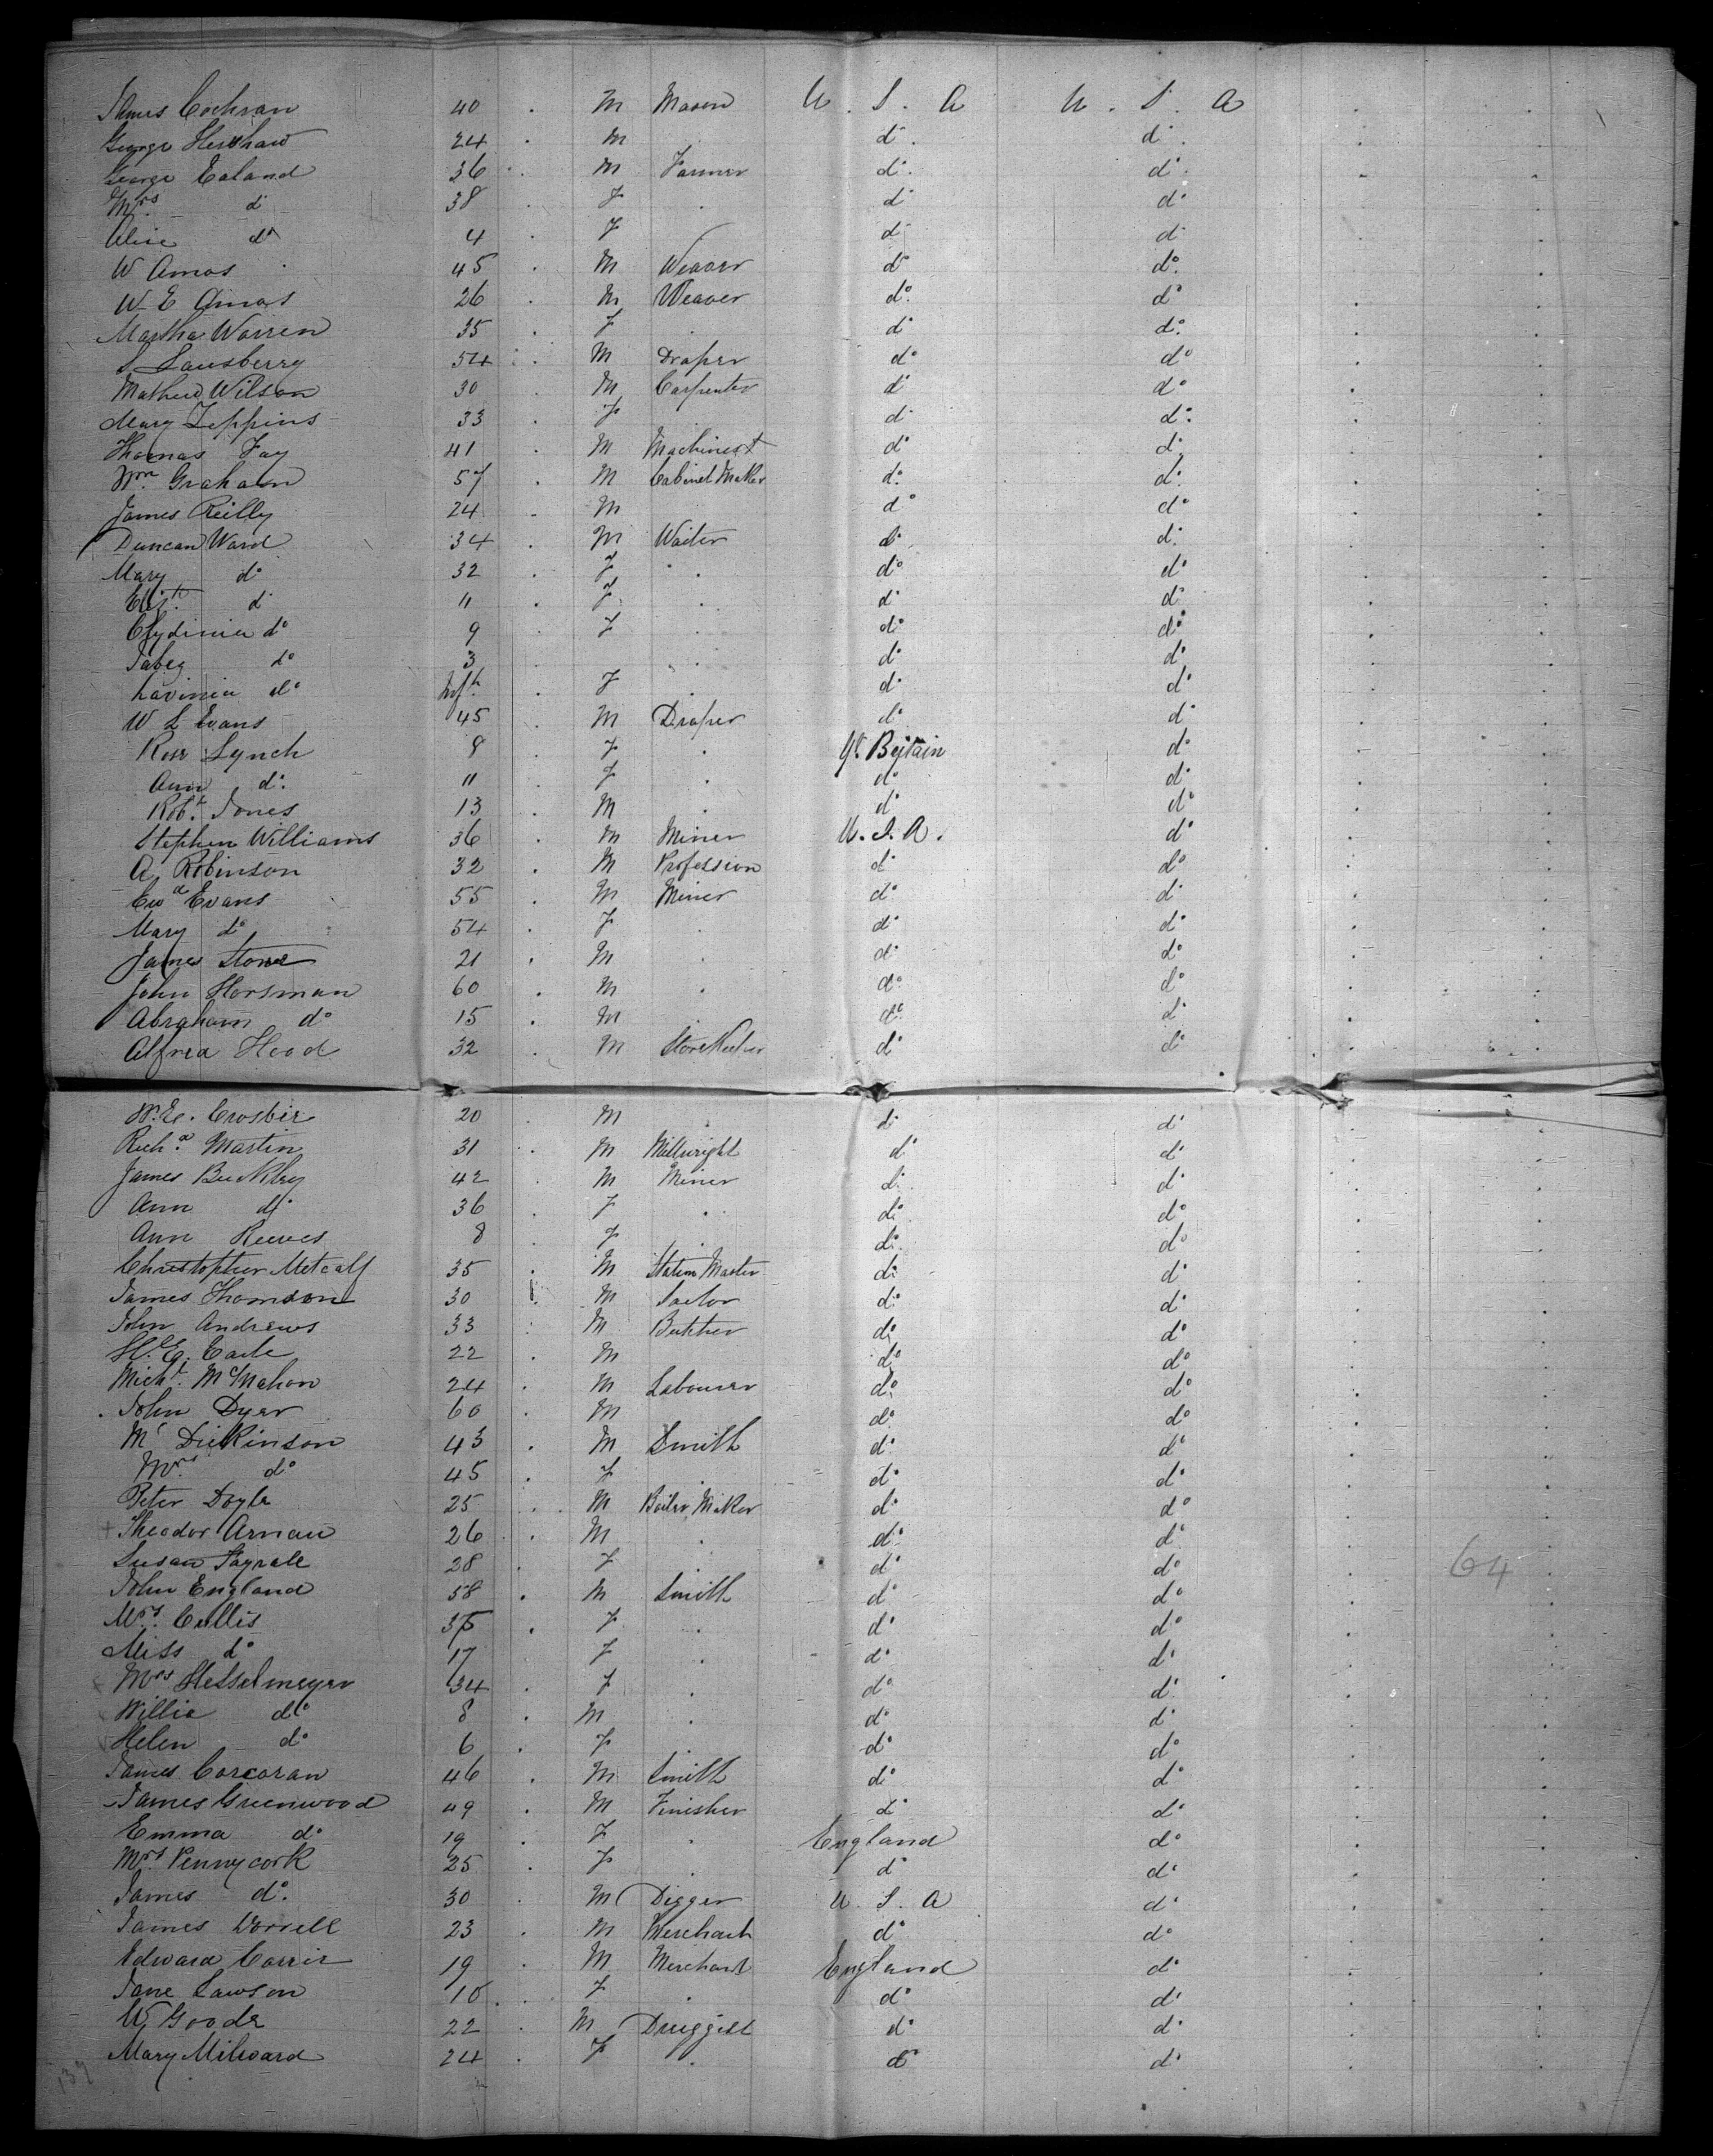 James Cochran 40 . M Mason U . S . A U . S . A
George Henshaw 24 . M . do do
George Ealand 36 . M Farmer do do
Mrs do 38 . F . do do
Alice do 4 . F . do do
W Amos 45 . M Weaver do do
W E Amos 26 . M Weaver do do
Martha Warren 35 . F . do do
S Sansberry 54 . M Draper do do
Mathew Wilson 30 . M Carpenter do do
Mary Zeppins 33 . F do do
Thomas Fay 41 . M Machinest do do
Wm Graham 57 . M Cabinet Maker do do
James Reilly 24 . M do do
Duncan Ward 34 . M Waiter do do
Mary do 32 . F . do do
Elizth do 11 . F . do do
Clydinia do 9 . F . do do
Jabez do 3 . do do
Lavinia do Inft . F . do do
W L Evans 45 . M Draper do do
Rose Lynch 8 . F . Gt Britain do
Ann do 11 . F . do do
Robt Jones 13 . M . do do
Stephen Williams 36 . M Miner U.S.A. do
A. Robinson 32 . M Profession do do
Ewd Evans 55 . M Miner do do
Mary do 54 . F . do do
James Stone 21 . M . do do
John Horsman 60 . M . do do
Abraham do 15 . M . do do
Alfred Hood 32 . M StoreKeeper do do
W.E. Crosbie 20 . M do do
Richd Martin 31 . M Millwright do do
James Buckley 42 . M Miner do do
Ann do 36 . F . do do
Ann Reeves 8 . F . do do
Christopher Metcalf 35 . M Station Master do do
James Thomson 30 . M Sailor do do
John Andrews 33 . M Butcher do do
H. E. Earle 22 . M do do
Michl McMahon 24 . M Labourer do do
John Dyer 60 . M do do
Mr Dickinson 43 . M Smith do do
Mrs do 45 . F do do
Peter Doyle 25 . M Boiler Maker do do
Theodor Arnau 26 . M . do do
Susan 28 F do do
64
John England 58 . M Smith do do
Mrs Cullis . F . do do
Miss do 17 F . do do
Mrs Hesselmeyer 34 . F . do do
Willie do 8 . M . do do
Helen do 6 . F . do do
James Corcoran 46 . M Smith do do
James Greenwood 49 . M Finisher do do
Emma do 19 . F . England do
Mrs Pennycork 25 . F . do do
James do 30 . M Digger U. S. A do
James Worrell 23 . M Merchant do do
Edward Corrie 19 . M Merchant England do
Jane Lawson 10 . F . do do
W Goode 22 . M Druggist do do
Mary Milward 24 . F . do do
139